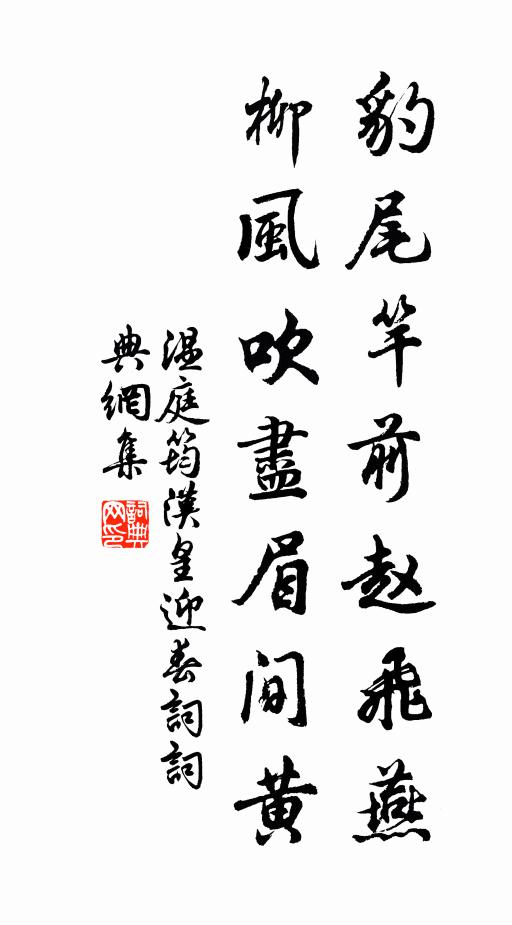 豹尾竿前赵飛燕
柳風吹盡眉間黄
温庭筠漢皇迎春詞詞
典網集
詞典
网印